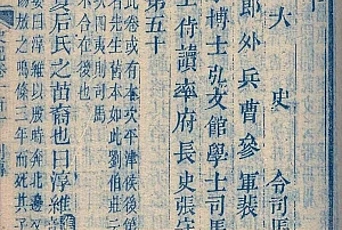 大史令司馬
郎外兵曹參軍裴
博士弘文館學士司馬
王侍讀率府長史張守
第五十
此卷或有本次平津侯後第
先生舊本如此劉伯莊云
次四夷則司馬
不合在後也
夏后氏之苗裔也曰淳維
晏曰淳維以殷時奔北邊
放之鳴條三年而死其子